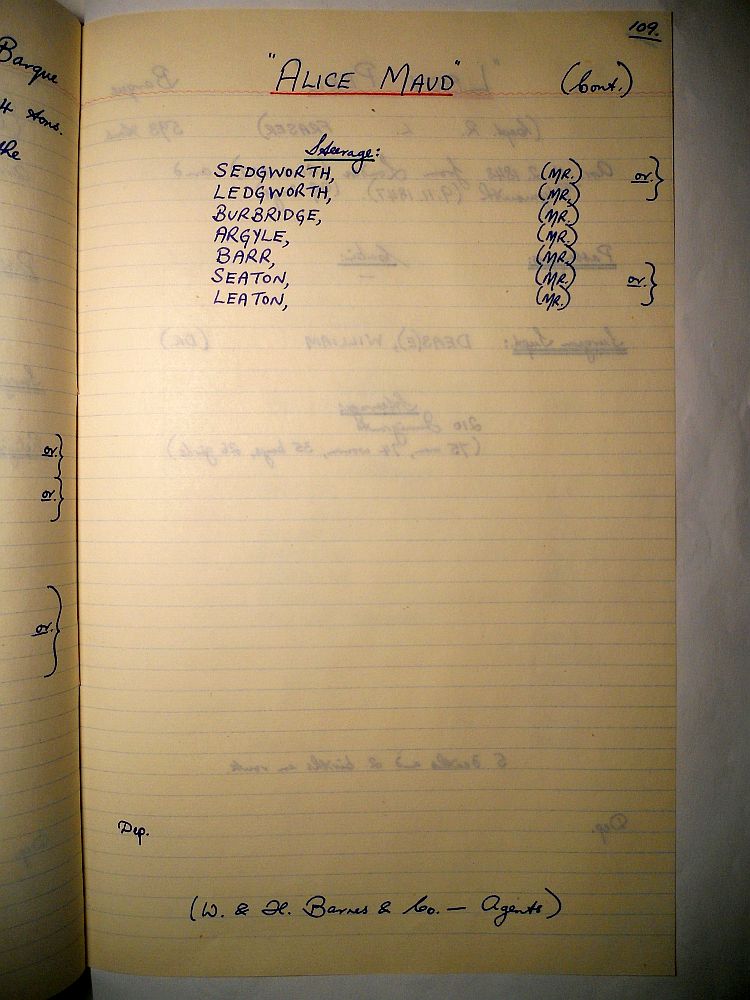 Barque
4 tons.
the
or.
or.
or.
109.
"ALICE MAUD" (Cont.)
Steerage:
SEDGWORTH, (MR.) or.
LEDGWORTH, (MR.)
BURBRIDGE, (MR.)
ARGYLE, (MR.)
BARR, (MR.)
SEATON, (MR.) or.
LEATON, (MR.)
Dep.
(W. & H. Barnes & Co. — Agents)